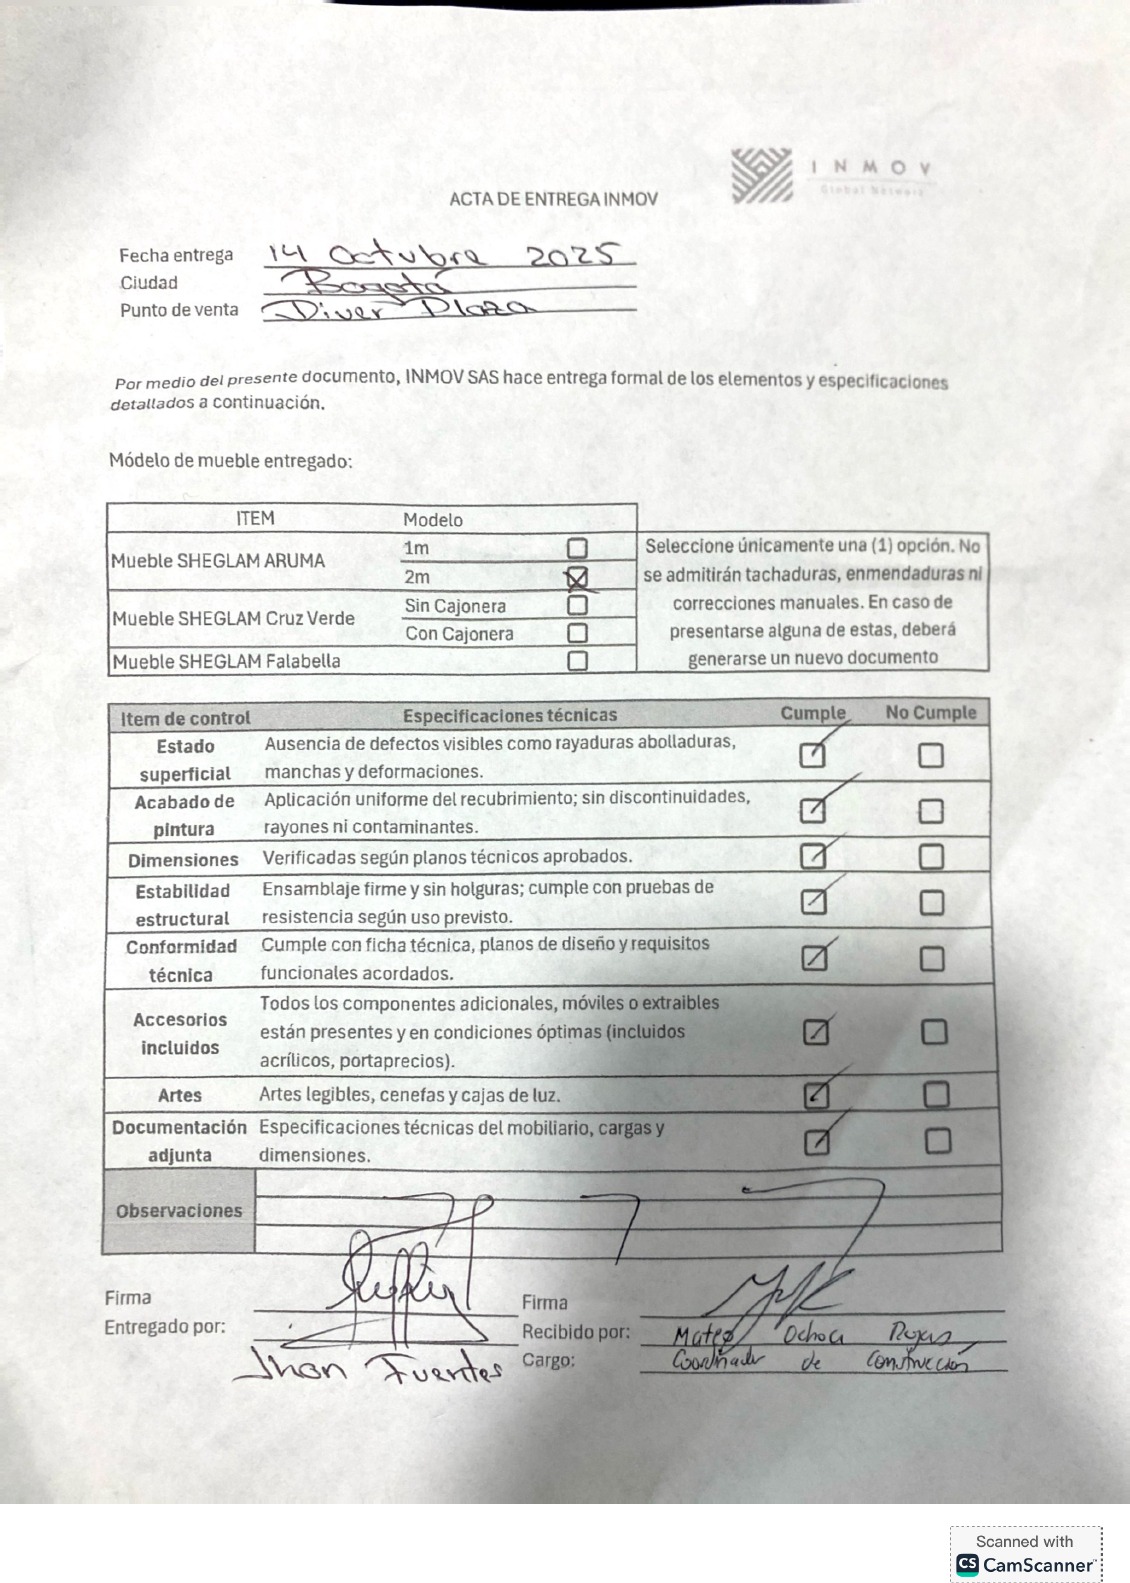 INMOV
Global Network
ACTA DE ENTREGA INMOV
Fecha entrega 14 Octubre 2025
Ciudad Bogotá
Punto de venta Diver Plaza
Por medio del presente documento, INMOV SAS hace entrega formal de los elementos y especificaciones
detallados a continuación.
Módelo de mueble entregado:
ITEM Modelo
Mueble SHEGLAM ARUMA
1m
2m
Mueble SHEGLAM Cruz Verde
Sin Cajonera
Con Cajonera
Mueble SHEGLAM Falabella
Seleccione únicamente una (1) opción. No
se admitirán tachaduras, enmendaduras ni
correcciones manuales. En caso de
presentarse alguna de estas, deberá
generarse un nuevo documento
Item de control Especificaciones técnicas Cumple No Cumple
Estado
superficial
Ausencia de defectos visibles como rayaduras abolladuras,
manchas y deformaciones.
Acabado de
pintura
Aplicación uniforme del recubrimiento; sin discontinuidades,
rayones ni contaminantes.
Dimensiones Verificadas según planos técnicos aprobados.
Estabilidad
estructural
Ensamblaje firme y sin holguras; cumple con pruebas de
resistencia según uso previsto.
Conformidad
técnica
Cumple con ficha técnica, planos de diseño y requisitos
funcionales acordados.
Accesorios
incluidos
Todos los componentes adicionales, móviles o extraibles
están presentes y en condiciones óptimas (incluidos
acrílicos, portaprecios).
Artes Artes legibles, cenefas y cajas de luz.
Documentación
adjunta
Especificaciones técnicas del mobiliario, cargas y
dimensiones.
Observaciones
Firma
Entregado por:
Jhon Fuentes
Firma
Recibido por: Mateo Ochoa Rojas
Cargo: Coordinador de Construcción
Scanned with
CS CamScanner